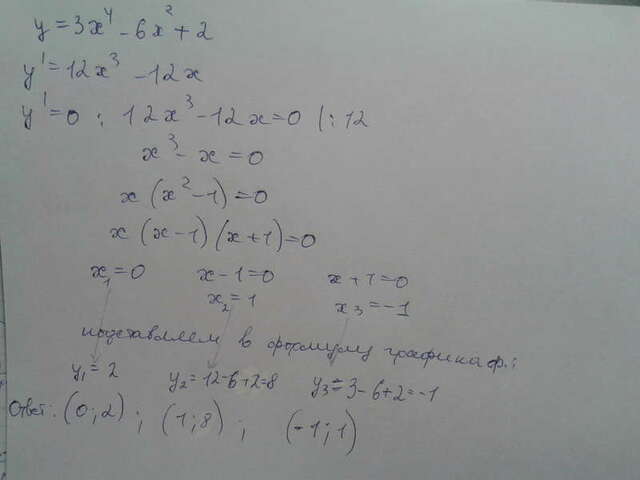 y = 3x⁴ - 6x² + 2
y' = 12x³ - 12x
y' = 0 ; 12x³ - 12x = 0 | : 12
x³ - x = 0
x (x² - 1) = 0
x (x - 1) (x + 1) = 0
x₁ = 0 x - 1 = 0 x + 1 = 0
x₂ = 1 x₃ = -1
подставляем в формулу графика ф.:
y₁ = 2 y₂ = 12 - 6 + 2 = 8 y₃ = 3 - 6 + 2 = -1
Ответ: (0 ; 2) ; (1 ; 8) ; (-1 ; 1)